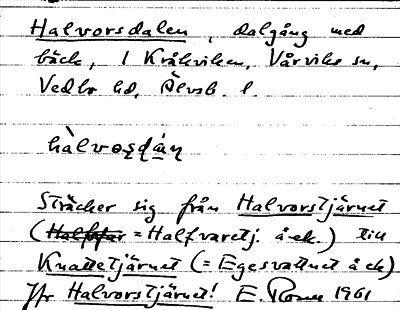 Halvorsdalen, dalgång med
bäck, i Kråkviken, Vårviks sn,
Vedbo hd, Älvsb. l.
hàlvoșḍáṇ
Sträcker sig från Halvorstjärnet
(= Halfvaretj. å ek.) till
Knattetjärnet (= Egesvattnet å ek)
Jfr Halvorstjärnet! E. 1961